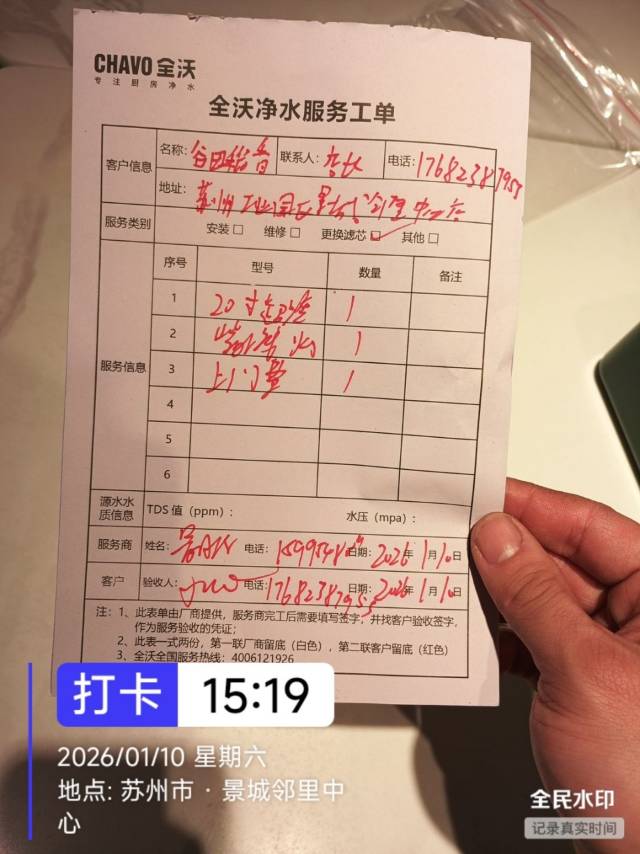 CHAVO 全沃
专注厨房净水
全沃净水服务工单
客户信息 名称: 谷田稻香 联系人: 店长 电话: 17682387953
地址: 苏州工业园区景城邻里中心
服务类别 安装□ 维修□ 更换滤芯☑ 其他□
服务信息 序号 型号 数量 备注
1 20寸 1
2 1
3 上门 1
4
5
6
源水水质信息 TDS 值（ppm）: 水压（mpa）:
服务商 姓名: 电话: 日期: 2026年1月10日
客户 验收人: 电话: 17682387953 日期: 2026年1月10日
注：1、此表单由厂商提供，服务商完工后需要填写签字，并找客户验收签字，
作为服务验收的凭证；
2、此表一式两份，第一联厂商留底（白色），第二联客户留底（红色）
3、全沃全国服务热线：4006121926
打卡 15:19
2026/01/10 星期六
地点: 苏州市 · 景城邻里中
心
全民水印
记录真实时间